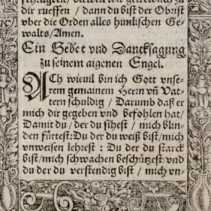 dir rueffen / dann du bist der Obrist
vber die Orden alles himlischen Ge-
walts / Amen.
Ein Gebet vnd Dancksagung
zu seinem aignen Engel.
Ach wieuil bin ich Gott vnse-
rem gemainem Herrn vñ Vat-
tern schuldig / Darumb daß er
mich dir gegeben vnd befohlen hat /
Damit du / der du sihest / mich blin-
den fürtest: Du der du weist bist / mich
vnweisen lehrest : Du der du starck
bist / mich schwachen beschützest vnd
du der du verstendig bist / mich vn-